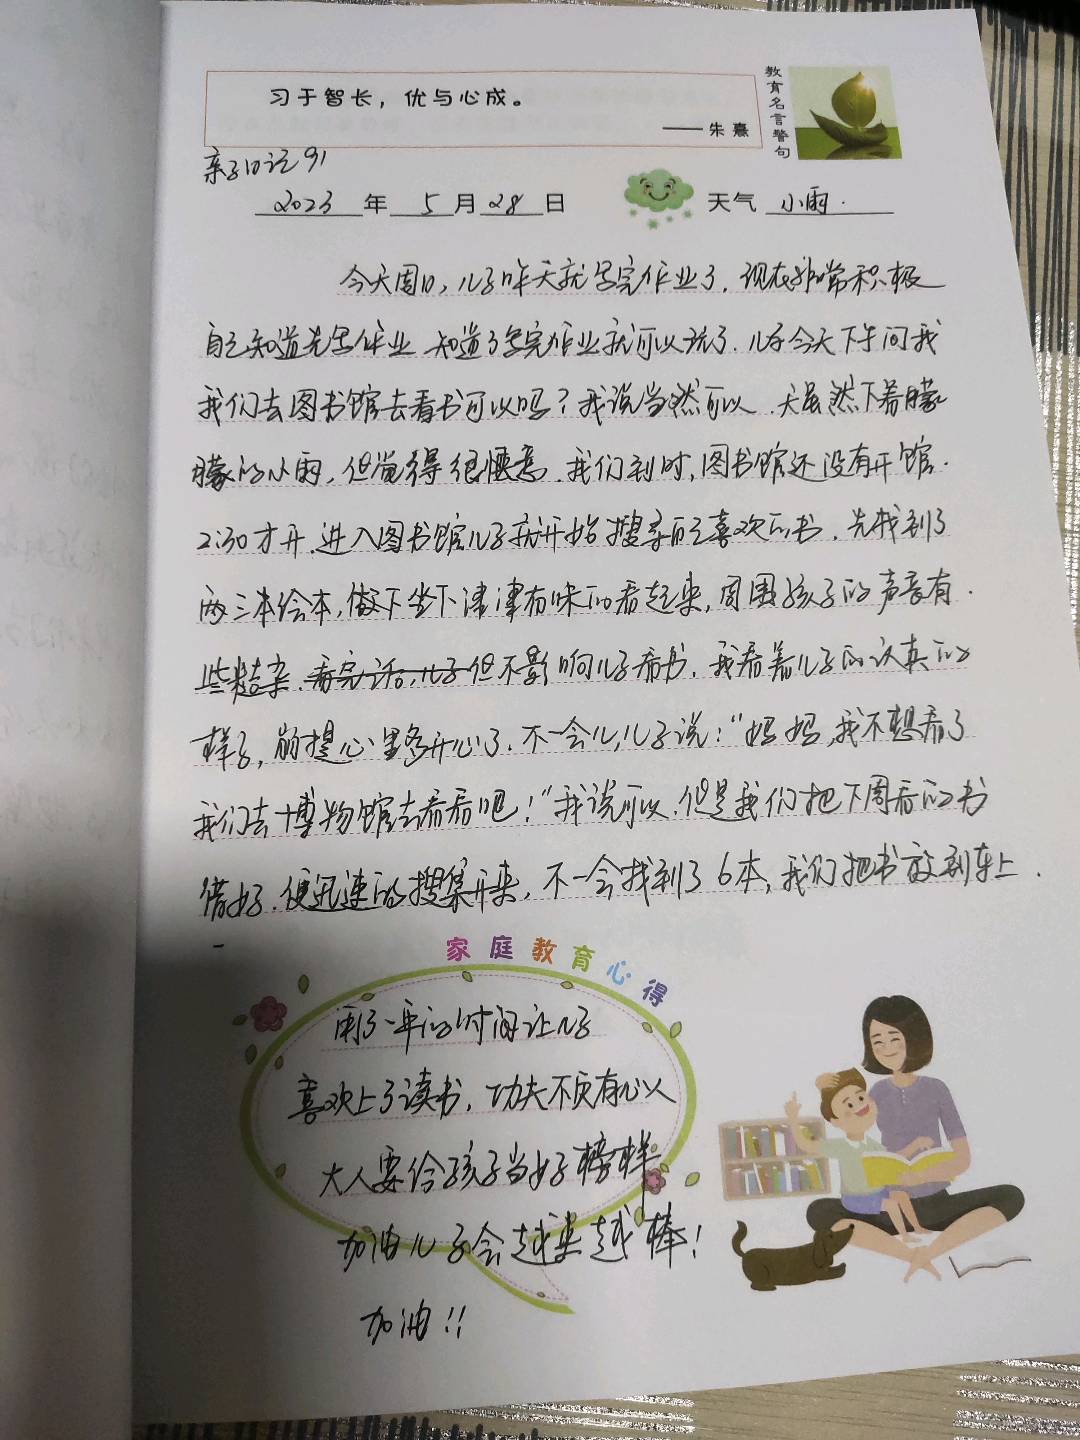 习于智长，优与心成。
—— 朱熹
教育名言警句
亲子日记91
2023年5月28日 天气 小雨.
今天周日，儿子昨天就写完作业了．现在非常积极
自己知道先写作业 知道了写完作业就可以玩了．儿子今天下午问我
我们去图书馆去看书可以吗？我说当然可以．天虽然下着朦
朦的小雨，但觉得很惬意．我们到时，图书馆还没有开馆．
2:30才开．进入图书馆儿子就开始搜寻自己喜欢的书．先找到了
两三本绘本，做下坐下津津有味的看起来，周围孩子的声音有．
些糟杂．看完话，儿子但不影响儿子看书．我看着儿子的认真的
样子，别提心里多开心了．不一会儿，儿子说：“妈妈，我不想看了
我们去博物馆去看看吧！”我说可以．但是我们把下周看的书
借好．便迅速的搜集开来，不一会找到了6本，我们把书放到车上．
家庭教育心得
用了一年的时间让儿子
喜欢上了读书，功夫不负有心人
大人要给孩子当好榜样
加油儿子会越来越棒！
加油！！